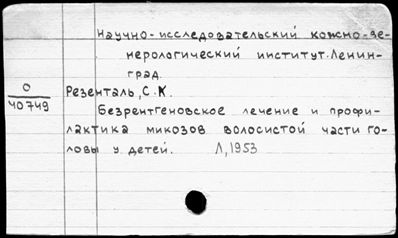 Научно-исследовательский кожно-ве-
нерологический институт. Ленин-
град.
О
40749
Резенталь, С.К.
Безрентгеновское лечение и профи-
лактика микозов волосистой части го-
ловы у детей. Л, 1953